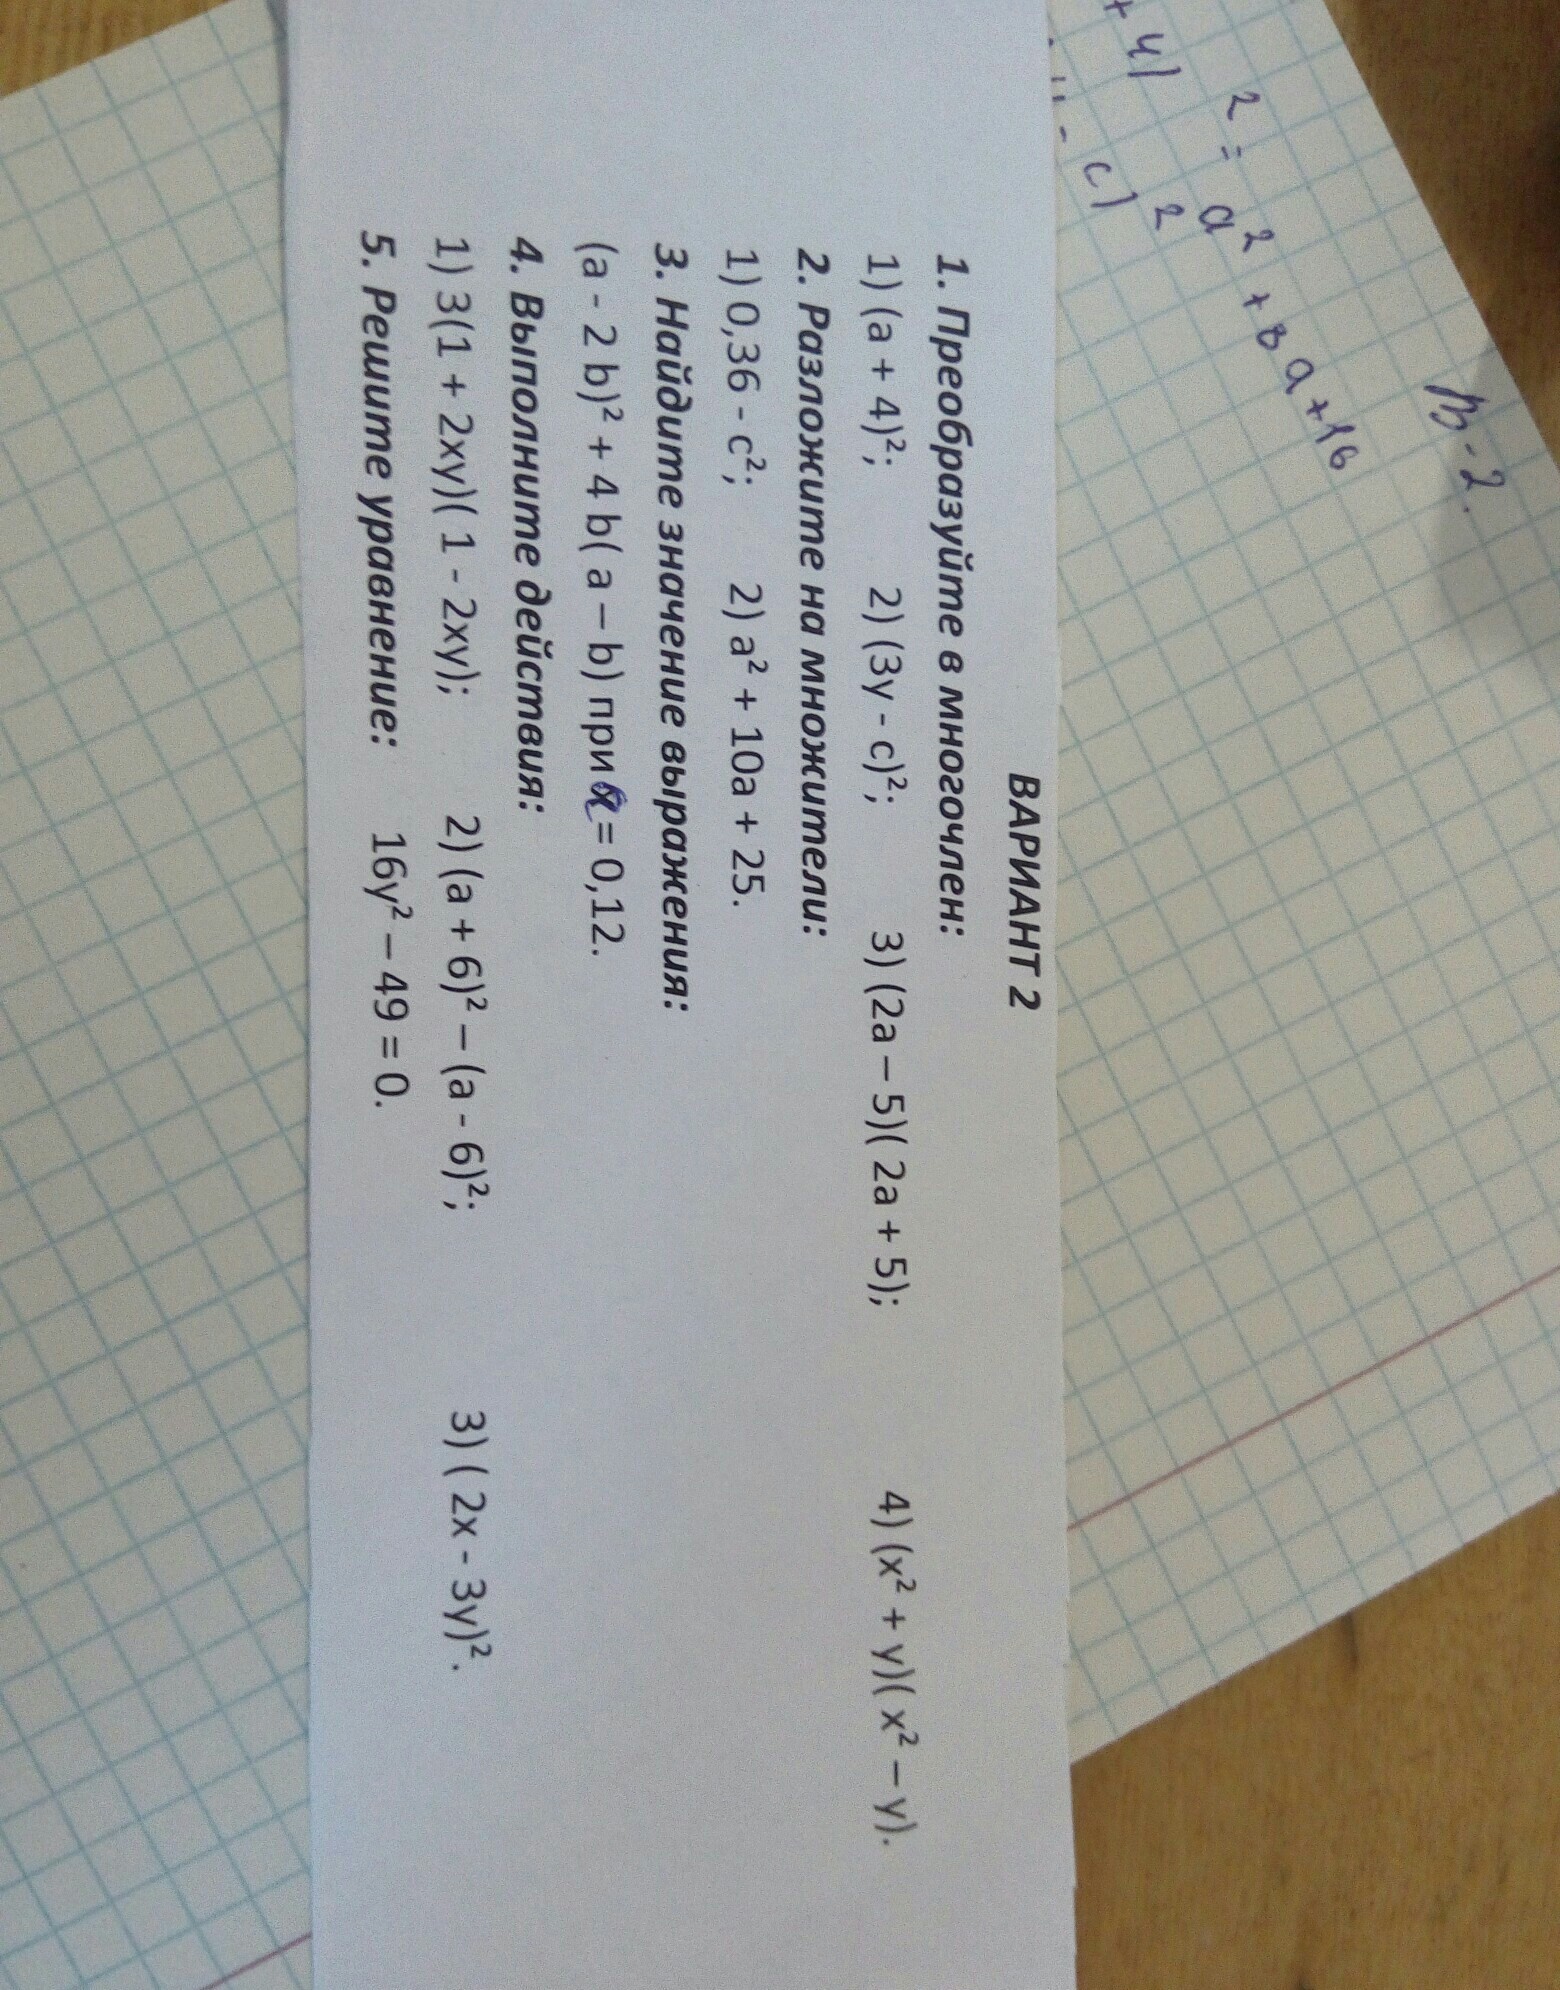 В-2.
+ 4)² = a² + 8a + 16
- c)²
ВАРИАНТ 2
1. Преобразуйте в многочлен:
1) (a + 4)²; 2) (3y - c)²; 3) (2a – 5)( 2a + 5); 4) (x² + y)( x² – y).
2. Разложите на множители:
1) 0,36 - c²; 2) a² + 10a + 25.
3. Найдите значение выражения:
(a - 2 b)² + 4 b( a – b) при a = 0,12.
4. Выполните действия:
1) 3(1 + 2xy)( 1 - 2xy); 2) (a + 6)² – (a - 6)²; 3) ( 2x - 3y)².
5. Решите уравнение: 16y² – 49 = 0.